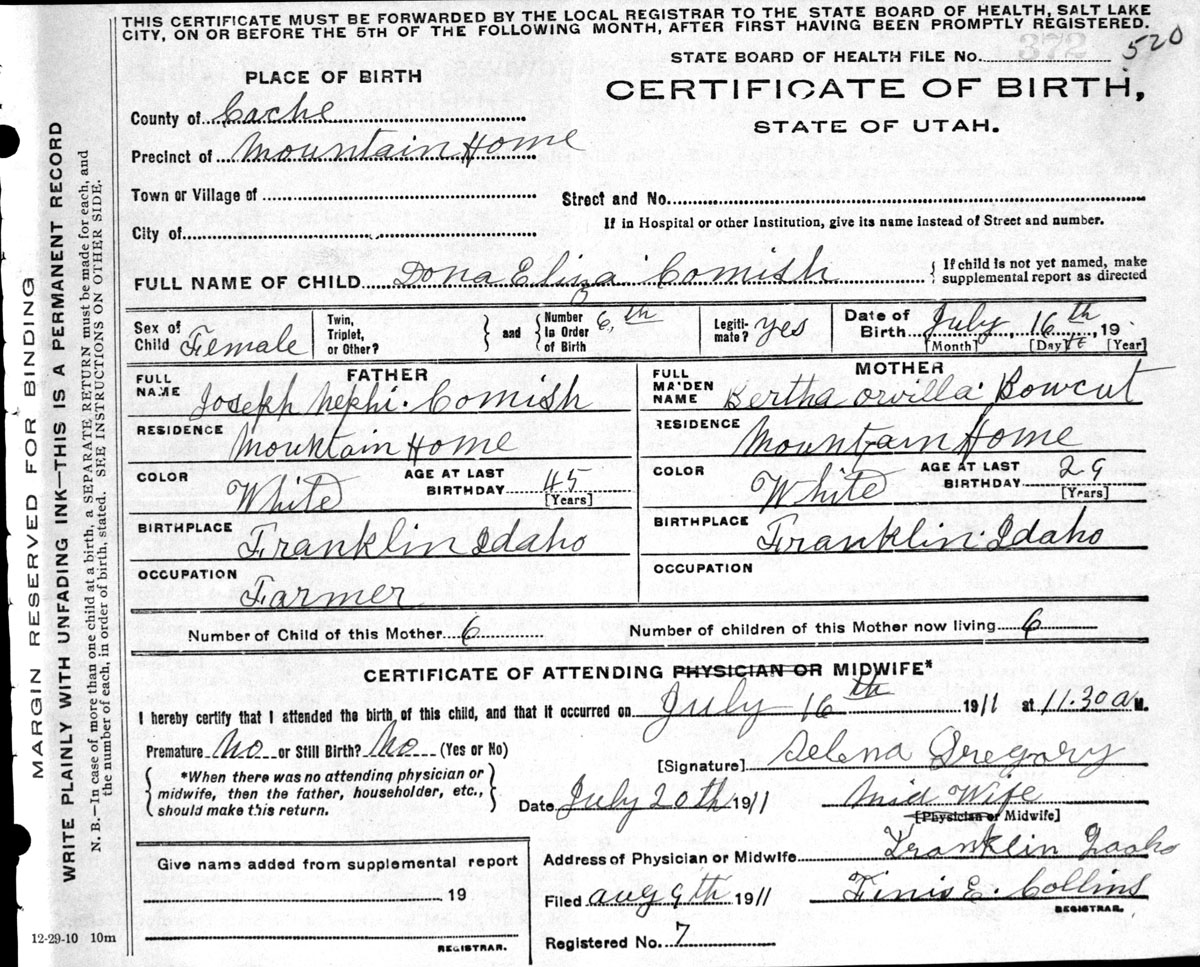 THIS CERTIFICATE MUST BE FORWARDED BY THE LOCAL REGISTRAR TO THE STATE BOARD OF HEALTH, SALT LAKE
CITY, ON OR BEFORE THE 5TH OF THE FOLLOWING MONTH, AFTER FIRST HAVING BEEN PROMPTLY REGISTERED.
STATE BOARD OF HEALTH FILE No. 372 520
PLACE OF BIRTH
CERTIFICATE OF BIRTH,
STATE OF UTAH.
County of Cache
Precinct of Mountain Home
Town or Village of
Street and No.
City of
If in Hospital or other Institution, give its name instead of Street and number.
FULL NAME OF CHILD Dona Eliza Comish
{ If child is not yet named, make
supplemental report as directed
Sex of Child Female
Twin, Triplet, or Other? } and { Number In Order of Birth 6,th
Legiti-mate? yes
Date of Birth July 16th 19
[Month] [Day] [Year]
FATHER
MOTHER
FULL NAME Joseph Nephi. Comish
FULL MAIDEN NAME Bertha Orvilla Bowcut
RESIDENCE Mountain Home
RESIDENCE Mountain Home
COLOR White AGE AT LAST BIRTHDAY 45 [Years]
COLOR White AGE AT LAST BIRTHDAY 29 [Years]
BIRTHPLACE Franklin Idaho
BIRTHPLACE Franklin Idaho
OCCUPATION Farmer
OCCUPATION
Number of Child of this Mother 6
Number of children of this Mother now living 6
CERTIFICATE OF ATTENDING PHYSICIAN OR MIDWIFE*
I hereby certify that I attended the birth of this child, and that it occurred on July 16th 1911 at 11.30 a M.
Premature No or Still Birth? No (Yes or No)
[Signature] Selena Gregory
{ *When there was no attending physician or
midwife, then the father, householder, etc.,
should make this return. }
Date July 20th 1911 Mid Wife
[Physician or Midwife]
Address of Physician or Midwife Franklin Idaho
Give name added from supplemental report
19
Filed Aug 9th 1911 Finis E. Collins
REGISTRAR.
Registered No. 7
REGISTRAR.
12-29-10 10m
MARGIN RESERVED FOR BINDING
WRITE PLAINLY WITH UNFADING INK—THIS IS A PERMANENT RECORD
N. B.—In case of more than one child at a birth, a SEPARATE RETURN must be made for each, and
the number of each, in order of birth, stated. SEE INSTRUCTIONS ON OTHER SIDE.